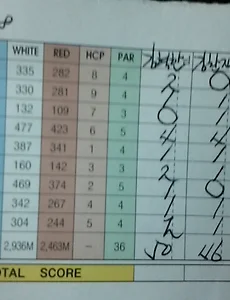 WHITE RED HCP PAR
335 282 8 4 2 0
330 281 9 4 1
132 109 7 3 0 1
477 423 6 5 4 4
387 341 1 4 1 1
160 142 3 3 2 1
469 374 2 5 1 0
342 267 4 4 1 1
304 244 5 4 2 1
2,936M 2,463M - 36 50 46
OTAL SCORE